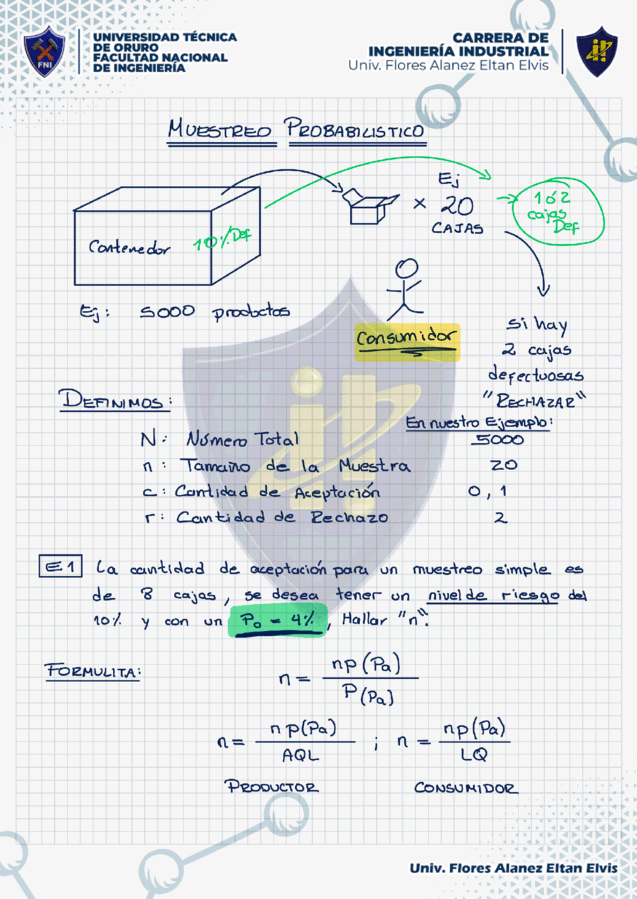 UNIVERSIDAD TÉCNICA
DE ORURO
FACULTAD NACIONAL
DE INGENIERÍA
FNI
CARRERA DE
INGENIERÍA INDUSTRIAL
Univ. Flores Alanez Eltan Elvis
MUESTREO PROBABILISTICO
Contenedor
10% Def
Ej
× 20
CAJAS
1 ó 2
cajas
Def
Ej: 5000 productos
Consumidor
si hay
2 cajas
defectuosas
"RECHAZAR"
DEFINIMOS:
En nuestro Ejemplo:
N: Número Total 5000
n: Tamaño de la Muestra 20
c: Cantidad de Aceptación 0, 1
r: Cantidad de Rechazo 2
E1 La cantidad de aceptación para un muestreo simple es
de 8 cajas, se desea tener un nivel de riesgo del
10% y con un P₀ = 4%, Hallar "n".
FORMULITA:
n = np(Pa) / P(Pa)
n = np(Pa) / AQL ; n = np(Pa) / LQ
PRODUCTOR CONSUMIDOR
Univ. Flores Alanez Eltan Elvis